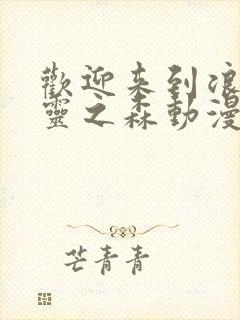 歡迎来到浪
靈之森動漫
芒青青